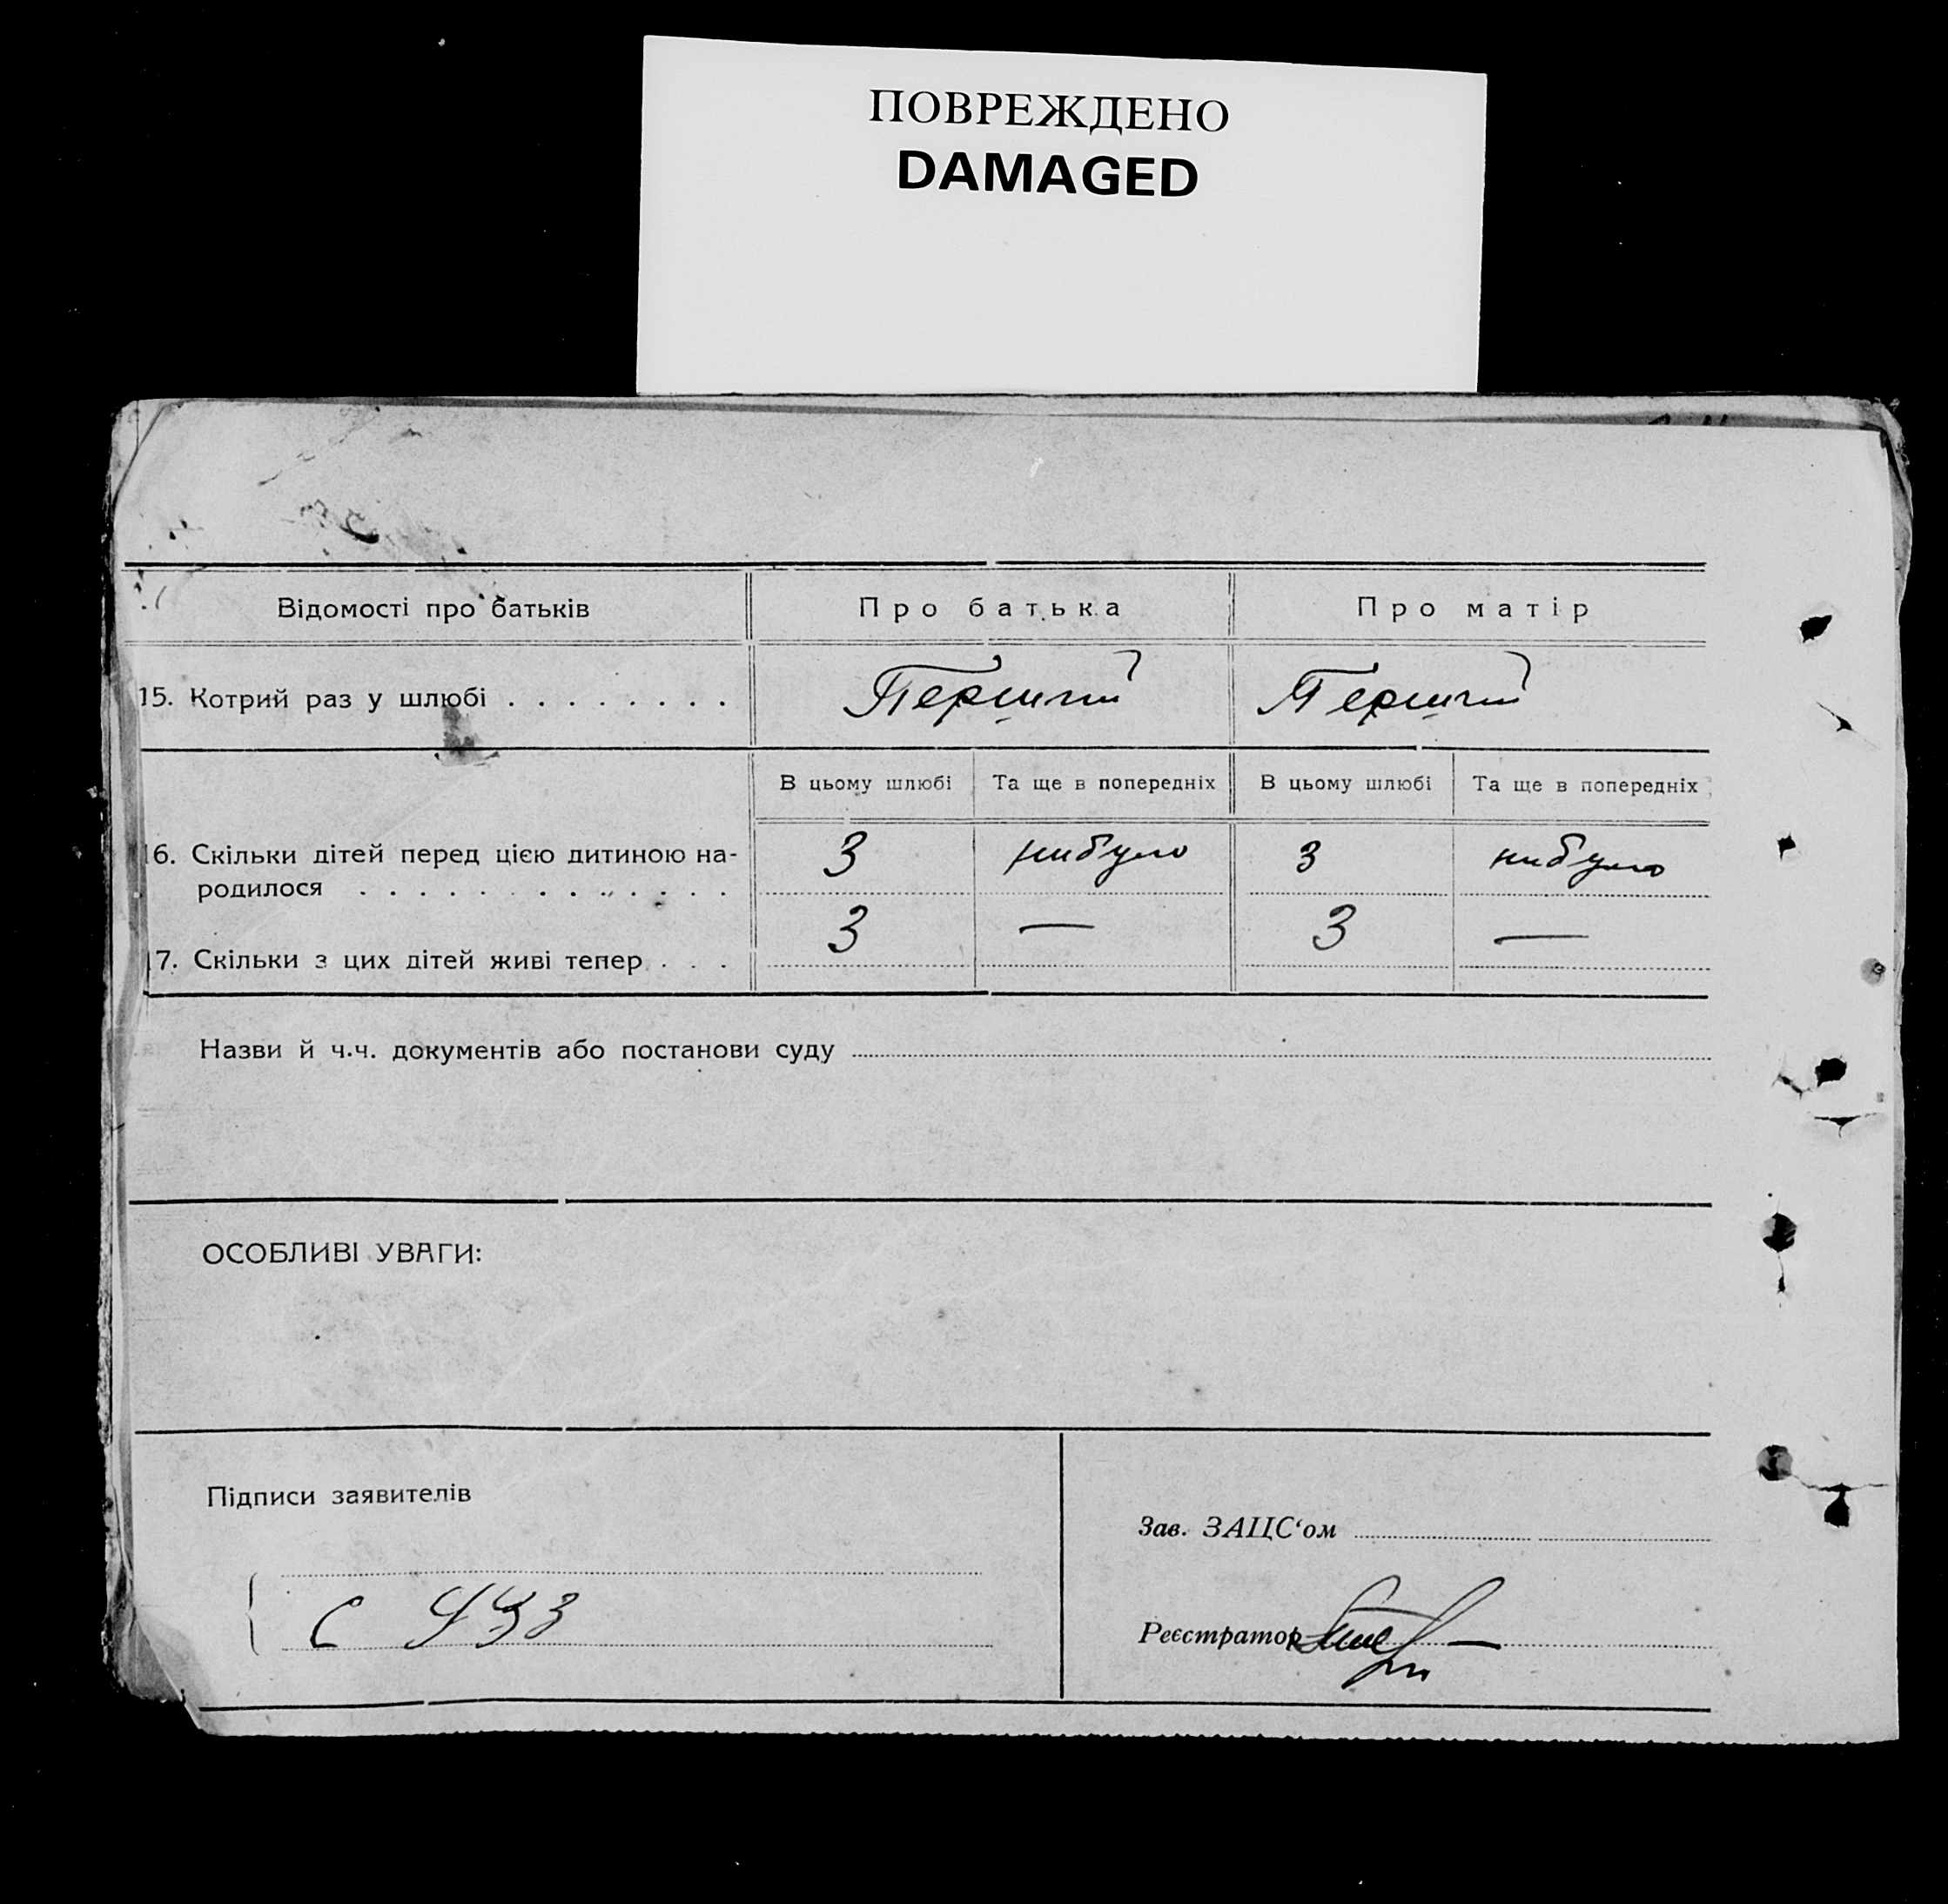 ПОВРЕЖДЕНО
DAMAGED
Відомості про батьків Про батька Про матір
15. Котрий раз у шлюбі . . . . . . . . Перший Перший
В цьому шлюбі Та ще в попередніх В цьому шлюбі Та ще в попередніх
16. Скільки дітей перед цією дитиною на- 3 нибуло 3 нибуло
родилося . . . . . . . . . . . . .
17. Скільки з цих дітей живі тепер . . . 3 — 3 —
Назви й ч.ч. документів або постанови суду
ОСОБЛИВІ УВАГИ:
Підписи заявителів
Зав. ЗАЦС‘ом
С 493
Реєстратор